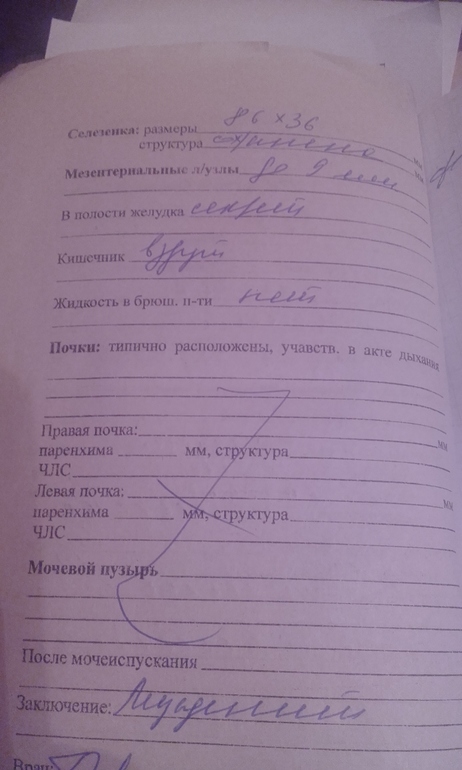 Селезенка: размеры 86 x 36 мм
структура сохранена
Мезентериальные л/узлы до 9 мм мм
В полости желудка секрет
Кишечник вздут
Жидкость в брюш. п-ти нет
Почки: типично расположены, учавств. в акте дыхания
Правая почка: мм
паренхима мм, структура
ЧЛС
Левая почка: мм
паренхима мм, структура
ЧЛС
Мочевой пузырь
После мочеиспускания
Заключение: Мезаденит
Врач: